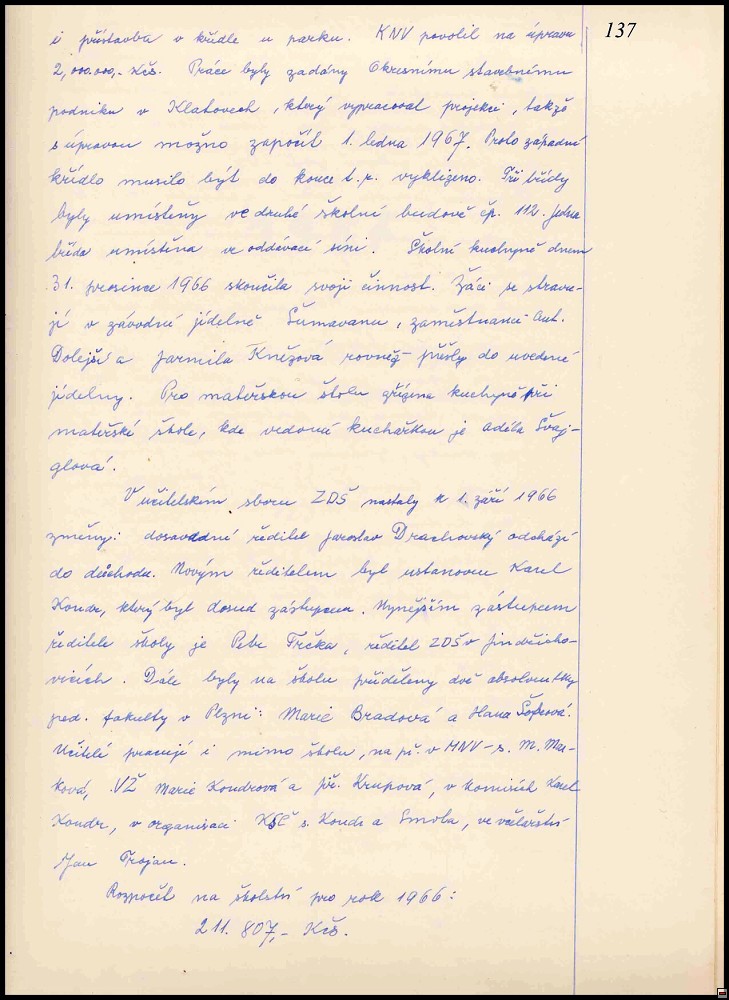 137
i přístavbu v křídle u parku. KNV povolil na úpravu
2,000.000,- Kčs. Práce byly zadány Okresnímu stavebnímu
podniku v Klatovech, který vypracoval projekci, takže
s úpravou možno započít 1. ledna 1967. Proto západní
křídlo musilo být do konce t.r. vyklizeno. Tři třídy
byly umístěny ve druhé školní budově čp. 112. Jedna
třída umístěna ve oddávací síni. Školní kuchyně dnem
31. prosince 1966 skončila svoji činnost. Žáci se stravu-
jí v závodní jídelně Šumavanu, zaměstnanci Ant.
Dolejší a Jarmila Kněžová rovněž přešly do uvedené
jídelny. Pro mateřskou školu zřízena kuchyně při
mateřské škole, kde vedoucí kuchařkou je Adéla Švaj-
glová.
V učitelském sboru ZDŠ nastaly k 1. září 1966
změny: dosavadní ředitel Jaroslav Drachovský odchází
do důchodu. Novým ředitelem byl ustanoven Karel
Koudr, který byl dosud zástupcem. Nynějším zástupcem
ředitele školy je Petr Trčka, ředitel ZDŠ v Jindřicho-
vicích. Dále byly na školu přiděleny dvě absolventky
ped. fakulty v Plzni: Marie Bradová a Hana
Učitelé pracují i mimo školu, na př. v MNV - s. M. Mar-
ková, VŽ Marie Koudrová a Jiř. Krupová, v komisích Karel
Koudr, v organisaci KSČ s. Koudr a Smola, ve včelařství
Jan Trojan.
Rozpočet na školství pro rok 1966:
211.807,- Kčs.